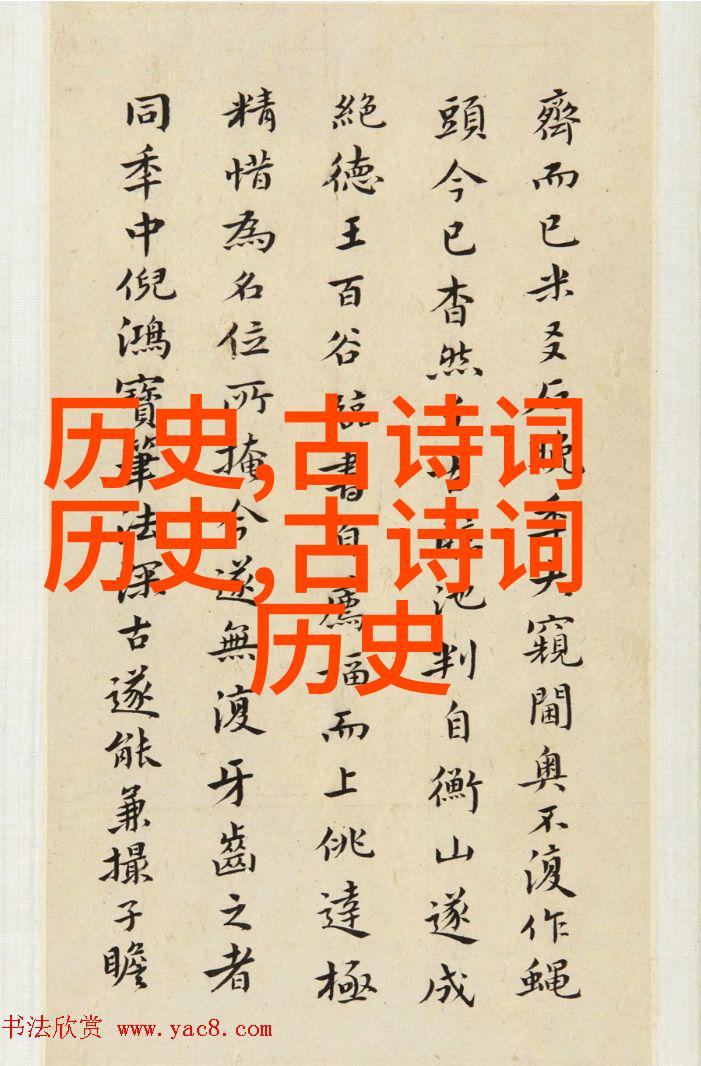 齊而已米友石晚季大窺閫奥不復作蝇
頭今已杳然千古池判自衡山遂成
絶德王百谷臨書自薦福而上佻達極
精惜為名位所掩今遂無復牙齒之者
同季中倪鴻寶筆法深古遂能兼撮子瞻
历史,古诗词
历史,古诗词
历史
书法欣赏 www.yac8.com